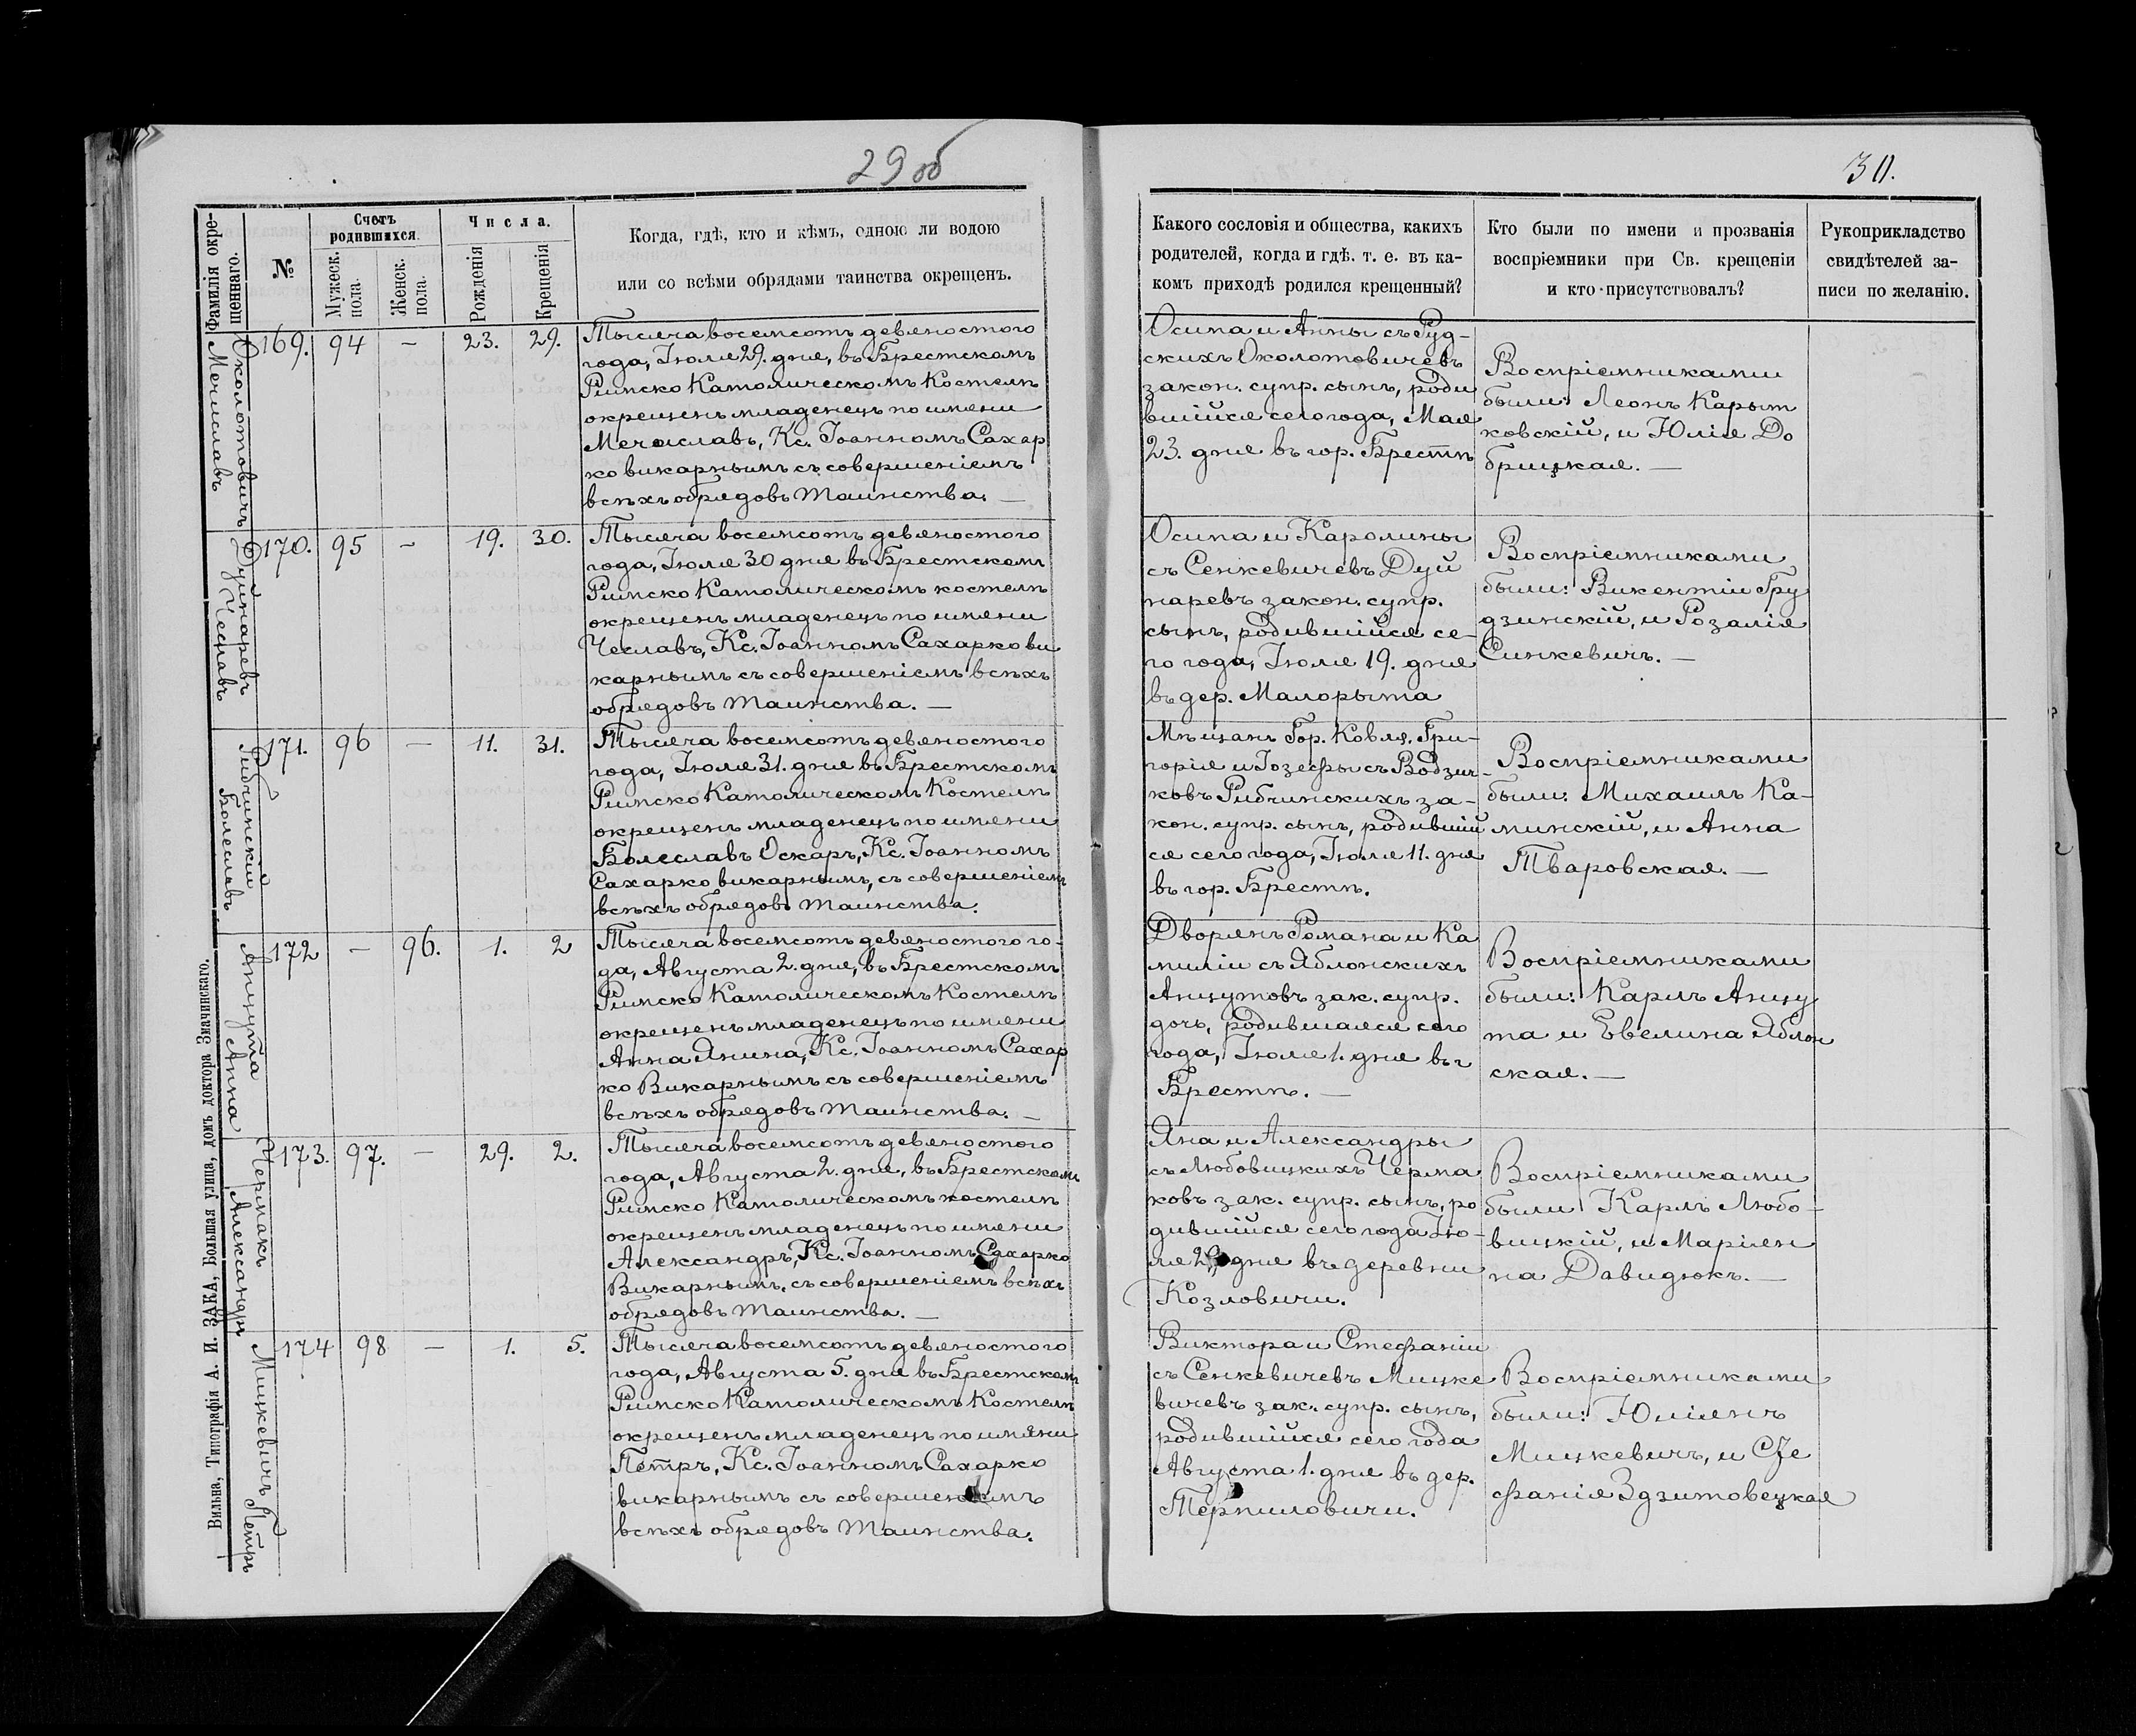 29 об
30.
Фамилія окре-
щеннаго.
№
Счетъ
родившихся.
Мужеск.
пола.
Женск.
пола.
Числа.
Рожденія
Крещенія
Когда, гдѣ, кто и кѣмъ, одною ли водою
или со всѣми обрядами таинства окрещенъ.
Какого сословія и общества, какихъ
родителей, когда и гдѣ. т. е. въ ка-
комъ приходѣ родился крещенный?
Кто были по имени и прозванія
воспріемники при Св. крещеніи
и кто присутствовалъ?
Рукоприкладство
свидѣтелей за-
писи по желанію.
Околотовичъ
Мечиславъ
169. 94 – 23. 29.
Тысяча восемсотъ девяностого
года, Іюля 29. дня, въ Брестскомъ
Римско Католическомъ Костелѣ
окрещенъ младенецъ по имени
Мечиславъ, Кс. Іоанномъ Сахар
ко викарнымъ съ совершеніемъ
всѣхъ обрядовъ таинства. —
Осипа и Анны съ Руд-
скихъ Околотовичевъ
закон. супр. сынъ, роди
вшійся сего года, Мая
23. дня въ гор. Брестѣ
Воспріемниками
были: Леонъ Карыт
ковскій, и Юлія До
брицкая. —
Дуйнаревъ
Чеславъ
170. 95 – 19. 30.
Тысяча восемсотъ девяностого
года, Іюля 30 дня въ Брестскомъ
Римско Католическомъ костелѣ
окрещенъ младенецъ по имени
Чеславъ, Кс. Іоанномъ Сахарко ви
карнымъ съ совершеніемъ всѣхъ
обрядовъ таинства. —
Осипа и Каролины
съ Сенкевичевъ Дуй
наревъ закон. супр.
сынъ, родившійся се-
го года, Іюля 19. дня
въ дер. Малорыта
Воспріемниками
были: Викентій Гру
дзинскій, и Розалія
Синкевичъ. —
Рибчинскій
Болеславъ
171. 96 — 11. 31.
Тысяча восемсотъ девяностого
года, Іюля 31. дня въ Брестскомъ
Римско Католическомъ Костелѣ
окрещенъ младенецъ по имени
Болеславъ Оскаръ, Кс. Іоанномъ
Сахарко викарнымъ, съ совершеніемъ
всѣхъ обрядовъ таинства.
Мѣщанъ Гор. Ковля, Гри-
горія и Іозефы съ Водзич-
ковъ Рибчинскихъ за-
кон. супр. сынъ, родившій
ся сего года, Іюля 11. дня
въ гор. Брестѣ.
Воспріемниками
были: Михаилъ Ка-
минскій, и Анна
Тваровская. —
Анцута
Анна
172 – 96. 1. 2
Тысяча восемсотъ девяностого го-
да, Августа 2. дня, въ Брестскомъ
Римско Католическомъ Костелѣ
окрещенъ младенецъ по имени
Анна Янина, Кс. Іоанномъ Сахар
ко Викарнымъ съ совершеніемъ
всѣхъ обрядовъ таинства. —
Дворянъ Романа и Ка
миліи съ Яблонскихъ
Анцутовъ зак. супр.
дочь, родившаяся сего
года, Іюля 1. дня въ г
Брестѣ. —
Воспріемниками
были: Карлъ Анцу
та и Евелина Яблон
ская. —
Чермакъ
Александръ
173. 97. – 29. 2.
Тысяча восемсотъ девяностого
года, Августа 2. дня, въ Брестскомъ
Римско Католическомъ костелѣ
окрещенъ младенецъ по имени
Александръ, Кс. Іоанномъ Сахарко
Викарнымъ, съ совершеніемъ всѣхъ
обрядовъ таинства. —
Яна и Александры
съ Любовицкихъ Черма
ковъ зак. супр. сынъ, ро
дившійся сего года Ію-
ля 29 дня въ деревни
Козловичи.
Воспріемниками
были Карлъ Любо-
вицкій, и Маріян
на Давидюкъ. —
Мицкевичъ Петръ
174 98 — 1. 5.
Тысяча восемсотъ девяностого
года, Августа 5. дня въ Брестскомъ
Римско Католическомъ Костелѣ
окрещенъ младенецъ по имяни
Петръ, Кс. Іоанномъ Сахарко
викарнымъ съ совершеніемъ
всѣхъ обрядовъ таинства.
Виктора и Стефаніи
съ Сенкевичевъ Мицке
вичевъ зак. супр. сынъ,
родившійся сего года
Августа 1. дня въ дер.
Терпиловичи.
Воспріемниками
были: Юліянъ
Мицкевичъ, и Сте
фанія Здзитовецкая
Вильна, Типографія А. И. ЗАКА, Большая улица, домъ доктора Змачинскаго.